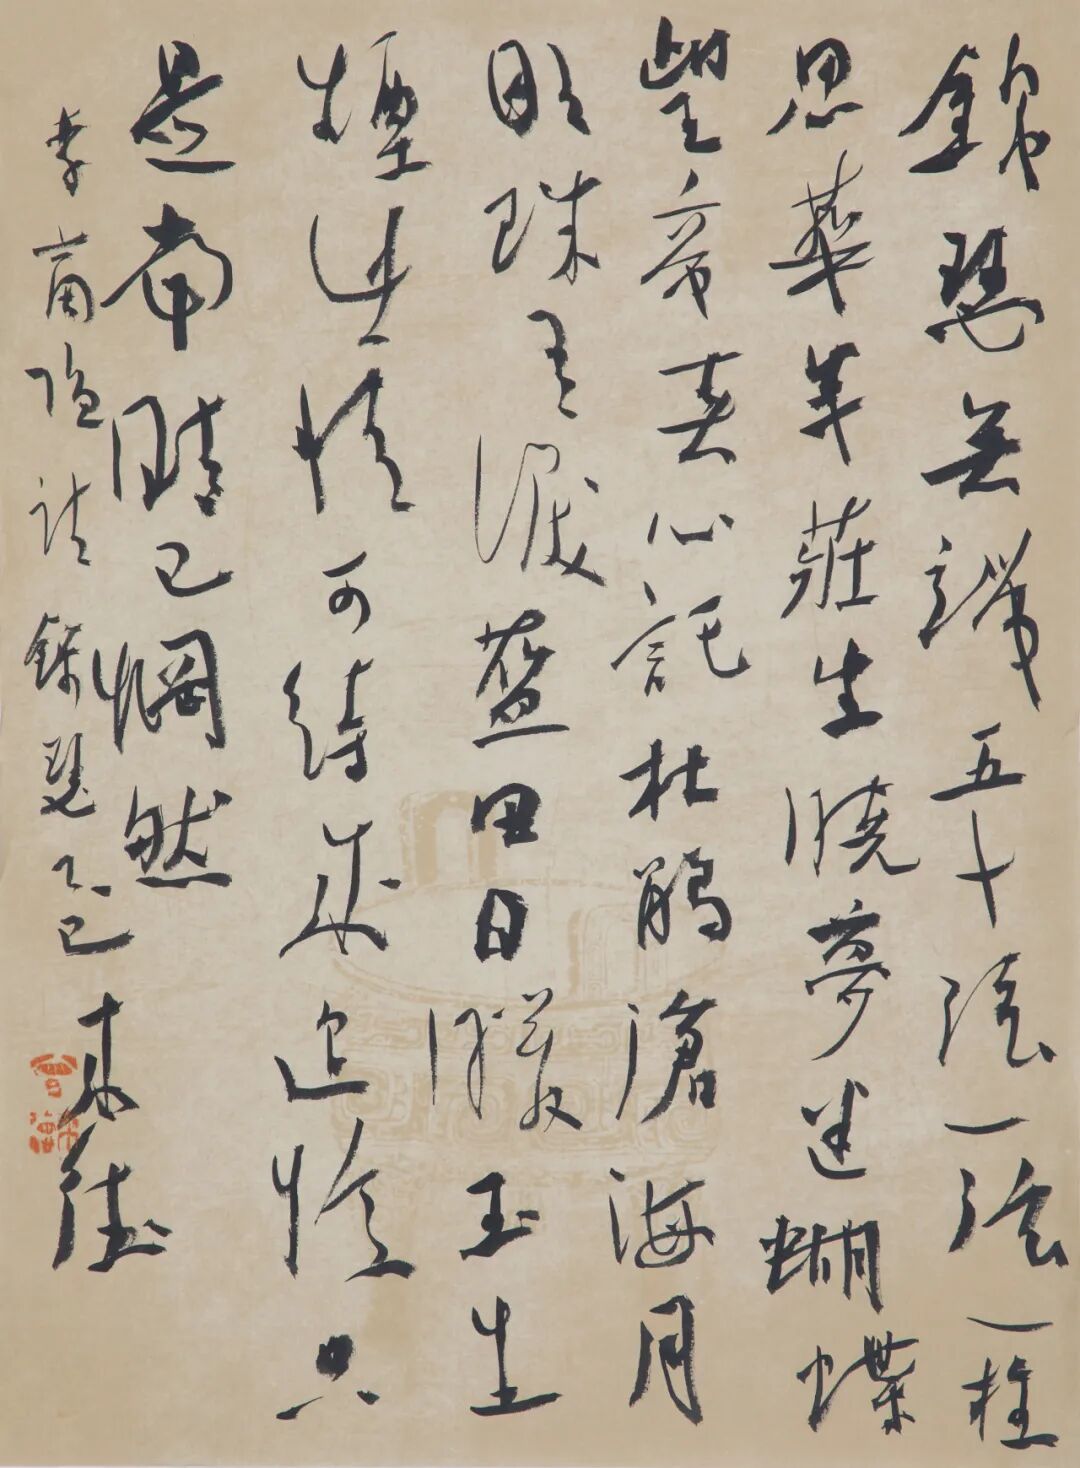 錦瑟無端五十弦一弦一柱
思華年莊生曉夢迷蝴蝶
望帝春心託杜鵑滄海月
明珠有淚藍田日暖玉生
煙此情可待成追憶只
是當時已惘然
李商隐詩錦瑟乙巳来德